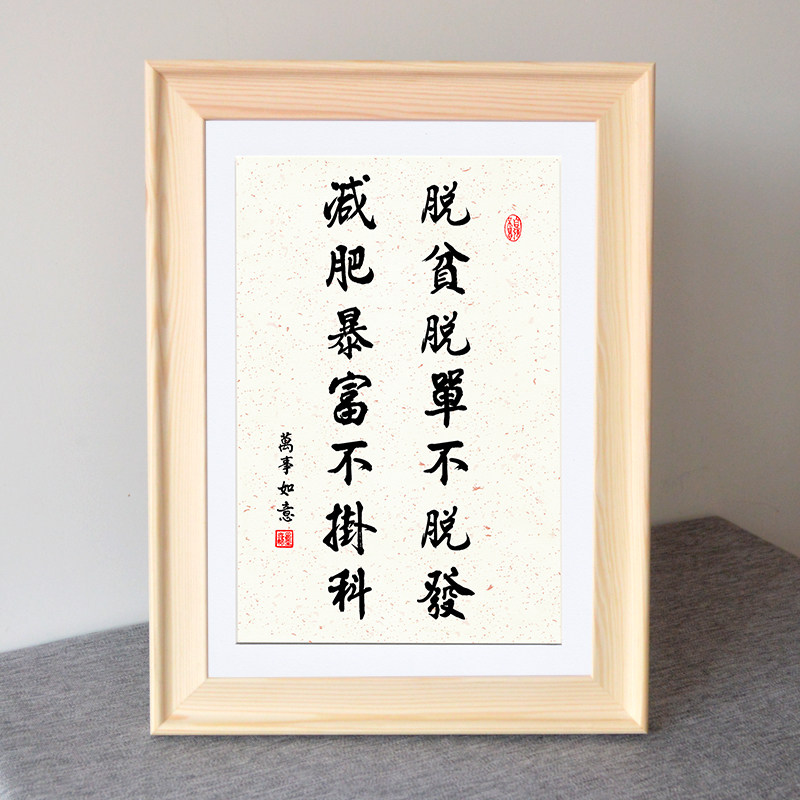 脱貧脱單不脱發
減肥暴富不掛科
萬事如意